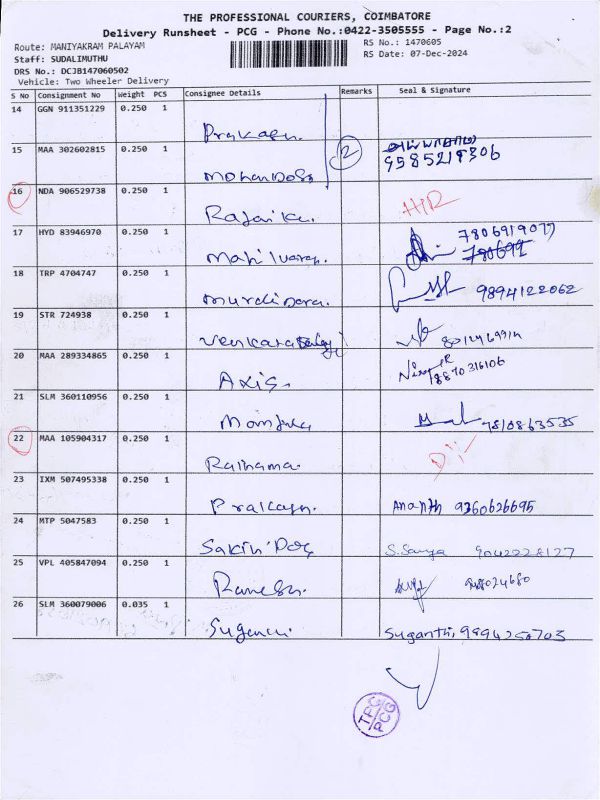 THE PROFESSIONAL COURIERS, COIMBATORE
Delivery Runsheet - PCG - Phone No.:0422-3505555 - Page No.:2
Route: MANIYAKRAM PALAYAM
RS No.: 1470605
Staff: SUDALIMUTHU
RS Date: 07-Dec-2024
DRS No.: DCJB147060502
Vehicle: Two Wheeler Delivery
S No Consignment No Weight PCS Consignee Details Remarks Seal & Signature
14 GGN 911351229 0.250 1
Prakash.
15 MAA 302602815 0.250 1 2
9585219306
Mohandoss
16 NDA 906529738 0.250 1
17 HYD 83946970 0.250 1 7806919077
18 TRP 4704747 0.250 1 9894122062
19 STR 724938 0.250 1
20 MAA 289334865 0.250 1
Axis.
21 SLM 360110956 0.250 1 7810863535
Manjula
22 MAA 105904317 0.250 1
23 IXM 507495338 0.250 1
Prakash. Ananth 9360626695
24 MTP 5047583 0.250 1
9042228127
25 VPL 405847094 0.250 1
Ramesh.
26 SLM 360079006 0.035 1
Suganthi, 9894250703
TPC
PCG